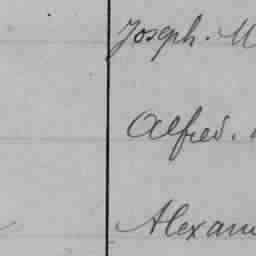 Joseph. M
Alfred.
Alexan